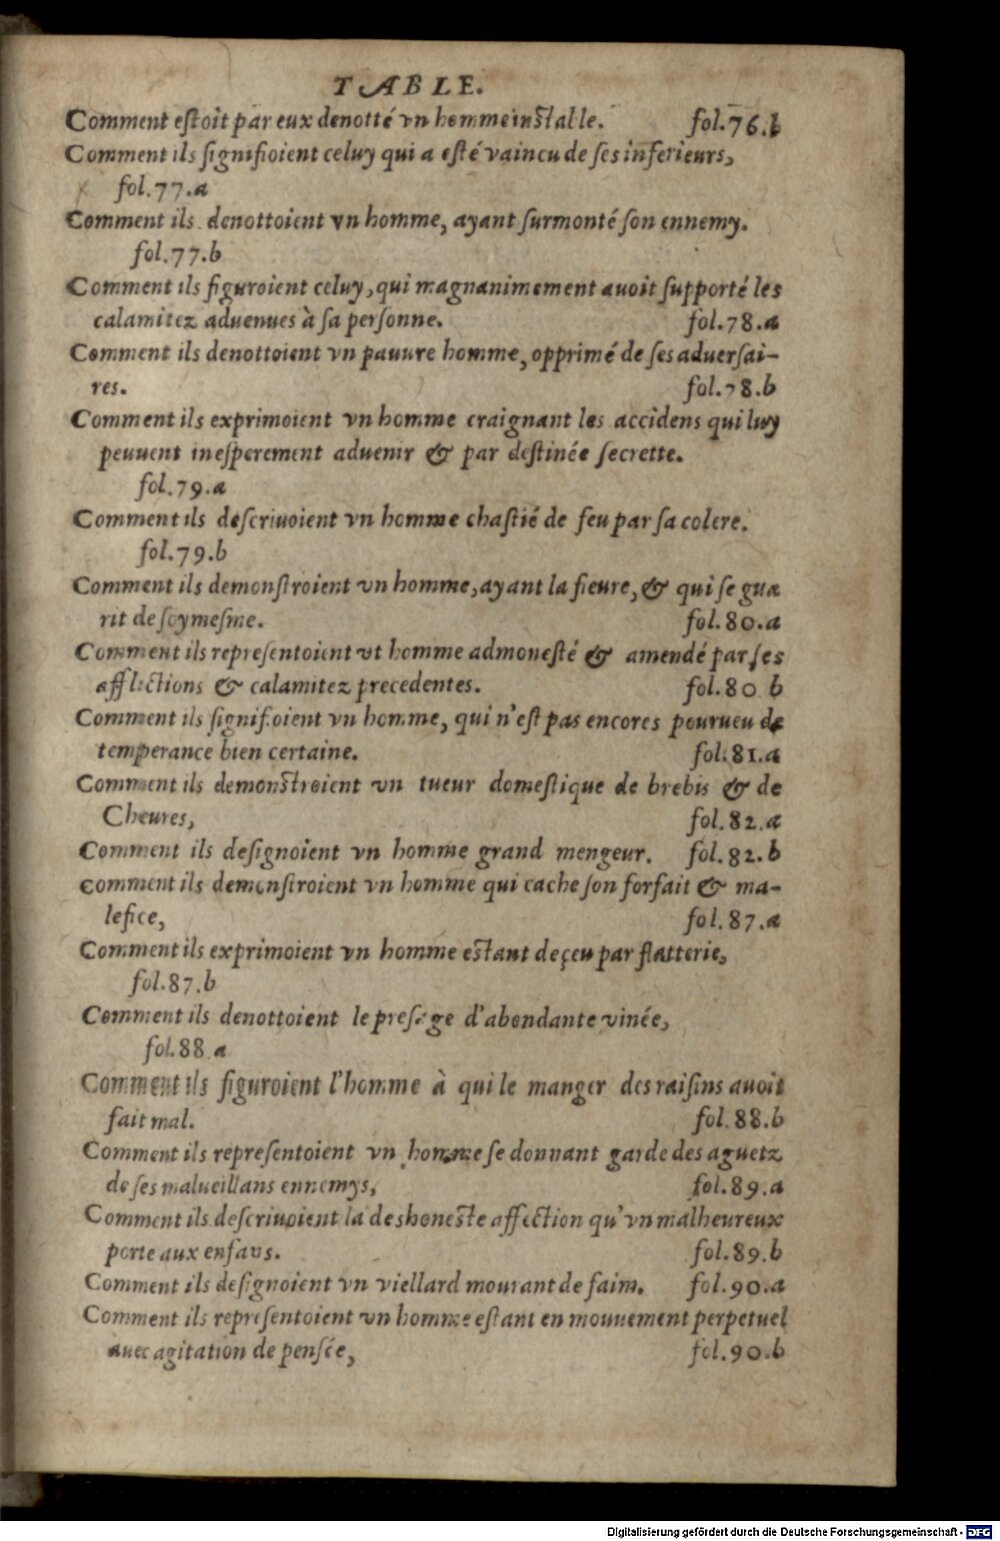 TABLE.
Comment eſtoit par eux denotté vn homme inſtalle. fol.76.b
Comment ils ſignifioient celuy qui a eſté vaincu de ſes inferieurs,
fol.77.a
Comment ils denottoient vn homme, ayant ſurmonté ſon ennemy.
fol.77.b
Comment ils figuroient celuy, qui magnanimement auoit ſupporté les
calamitez aduenues à ſa perſonne. fol.78.a
Comment ils denottoient vn pauure homme, opprimé de ſes aduerſai-
res. fol.78.b
Comment ils exprimoient vn homme craignant les accidens qui luy
peuuent ineſperement aduenir & par deſtinée ſecrette.
fol.79.a
Comment ils deſcriuoient vn homme chaſtié de feu par ſa colere.
fol.79.b
Comment ils demonſtroient vn homme, ayant la fieure, & qui ſe gua
rit de ſoymeſme. fol.80.a
Comment ils repreſentoient vt homme admoneſté & amendé par ſes
afflictions & calamitez precedentes. fol.80 b
Comment ils ſignifioient vn homme, qui n'eſt pas encores pourueu de
temperance bien certaine. fol.81.a
Comment ils demonſtroient vn tueur domeſtique de brebis & de
Cheures, fol.82.a
Comment ils deſignoient vn homme grand mengeur. fol.82.b
Comment ils demonſtroient vn homme qui cache ſon forfait & ma-
lefice, fol.87.a
Comment ils exprimoient vn homme eſtant deçeu par flatterie,
fol.87.b
Comment ils denottoient le preſage d'abondante vinée,
fol.88 a
Comment ils figuroient l'homme à qui le manger des raiſins auoit
fait mal. fol.88.b
Comment ils repreſentoient vn homme ſe donnant garde des aguetz
de ſes malueillans ennemys, fol.89.a
Comment ils deſcriuoient la deshoneſte affection qu'vn malheureux
porte aux enfans. fol.89.b
Comment ils deſignoient vn viellard mourant de faim. fol.90.a
Comment ils repreſentoient vn homme eſtant en mouuement perpetuel
auec agitation de penſée, fol.90.b
Digitalisierung gefördert durch die Deutsche Forschungsgemeinschaft - DFG